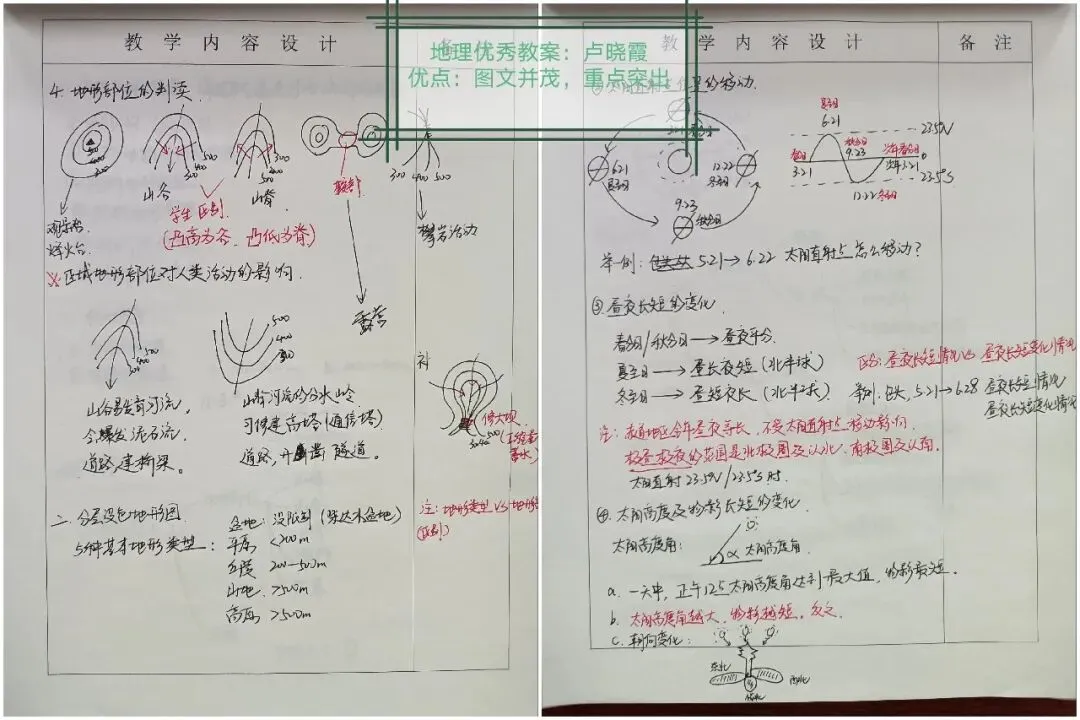 地理优秀教案：卢晓霞
优点：图文并茂，重点突出
教学内容设计
4. 地形部位的判读.
500
400
300
山谷
500
400
300
山脊
300
400
500
鞍部
300 400 500
学生区别
(凸高为谷，凸低为脊)
观景台
烽火台
攀岩活动
※区域地形部位对人类活动的影响.
露营
500
400
300
500
400
300
山谷易发育河流，
会爆发泥石流.
道路，建桥梁。
山脊河流的分水岭
可修建高塔(通信塔)
道路，开凿隧道。
补
修大坝
500
蓄水)
二、分层设色地形图
5种基本地形类型：
盆地：没限制 (柴达木盆地)
平原 <200m
丘陵 200-500m
山地 >500m
高原 >500m
注：地形类型VS地形
(区别)
教学内容设计
备注
的移动.
6.21
夏至日
12.22
冬至日
9.23
秋分日
夏至日
6.21
23.5°N
春分日
3.21
秋分日
9.23
次年春分日
次年3.21
0
23.5°S
12.22 冬至日
举例： 5.21→6.22 太阳直射点怎么移动？
③昼夜长短的变化
春分日/秋分日→昼夜平分
夏至日→昼长夜短(北半球)
冬至日→昼短夜长(北半球)
区分：昼夜长短情况VS 昼夜长短变化情况
举例. 5.21→6.28 昼夜长短情况
昼夜长短变化情况
注：赤道地区全年昼夜等长，不受太阳直射点移动影响.
极昼极夜的范围是北极圈及以北，南极圈及以南.
太阳直射23.5°N/23.5°S时.
④.太阳高度及物影长短的变化
太阳高度角：
α 太阳高度角
a. 一天中，正午12点太阳高度角达到最大值，物影最短.
b. 太阳高度角越大，物影越短，反之.
c. 朝向变化：
东北
西北